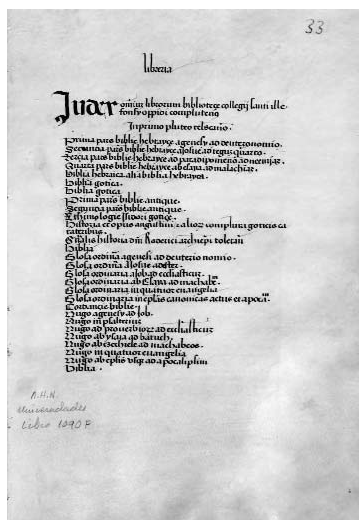 33
libraria
Index omnium librorum bibliotece collegij sancti ille
fonsy oppidi complutensis
In primo pluteo
Prima pars biblie hebrayce a genesy ad deutronomio.
Secunda pars biblie hebrayce a josue ad regum quarto.
Tercia pars biblie hebrayce a paradipomenon ad neemias.
Quarta pars biblie hebrayce ab esaya ad malachias.
Biblia hebraica alia biblia hebrayca.
biblia gotica.
biblia gotica.
Prima pars biblie antique.
Segunda pars biblie antique.
Ethimologie Isidori gotice.
historia et opus augustini
Biblia
Glosa ordinaria a genesi ad deuterio nomio.
Glosa ordinaria a Josue ad ester.
Glosa ordinaria a Job ad ecclesiasticum.
Glosa ordinaria ab Esaya ad machabeos.
Glosa ordinaria in quatuor euangelia
Glosa ordinaria in epistolas canonicas actus et apocal.
Concordancie biblie.
Hugo a genesy ad Job.
Hugo in psalterium
Hugo ad proverbiorum ad ecclesiasticum
Hugo ab ysaya ad baruch.
Hugo ab ezechiele ad machabeos.
Hugo in quatuor euangelia
Hugo ab epistolis usque ad apocalipsim
Biblia.
A.H.N
Universidades
Libro 1090 F